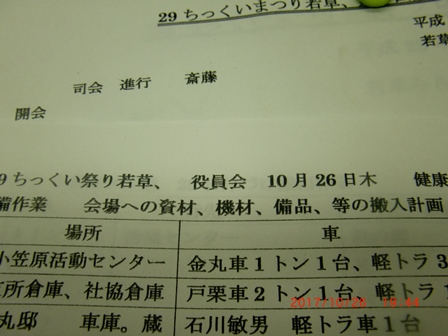 29 ちっくいまつり若草、
平成
若草
司会 進行 斎藤
開会
9ちっくい祭り若草、 役員会 10月26日木 健康
備作業 会場への資材、機材、備品、等の搬入計画
場所 車
小笠原活動センター 金丸車1トン1台、軽トラ3
所倉庫、社協倉庫 戸栗車2トン1台、軽トラ
丸邸 車庫。蔵 石川敏男 軽トラ車1